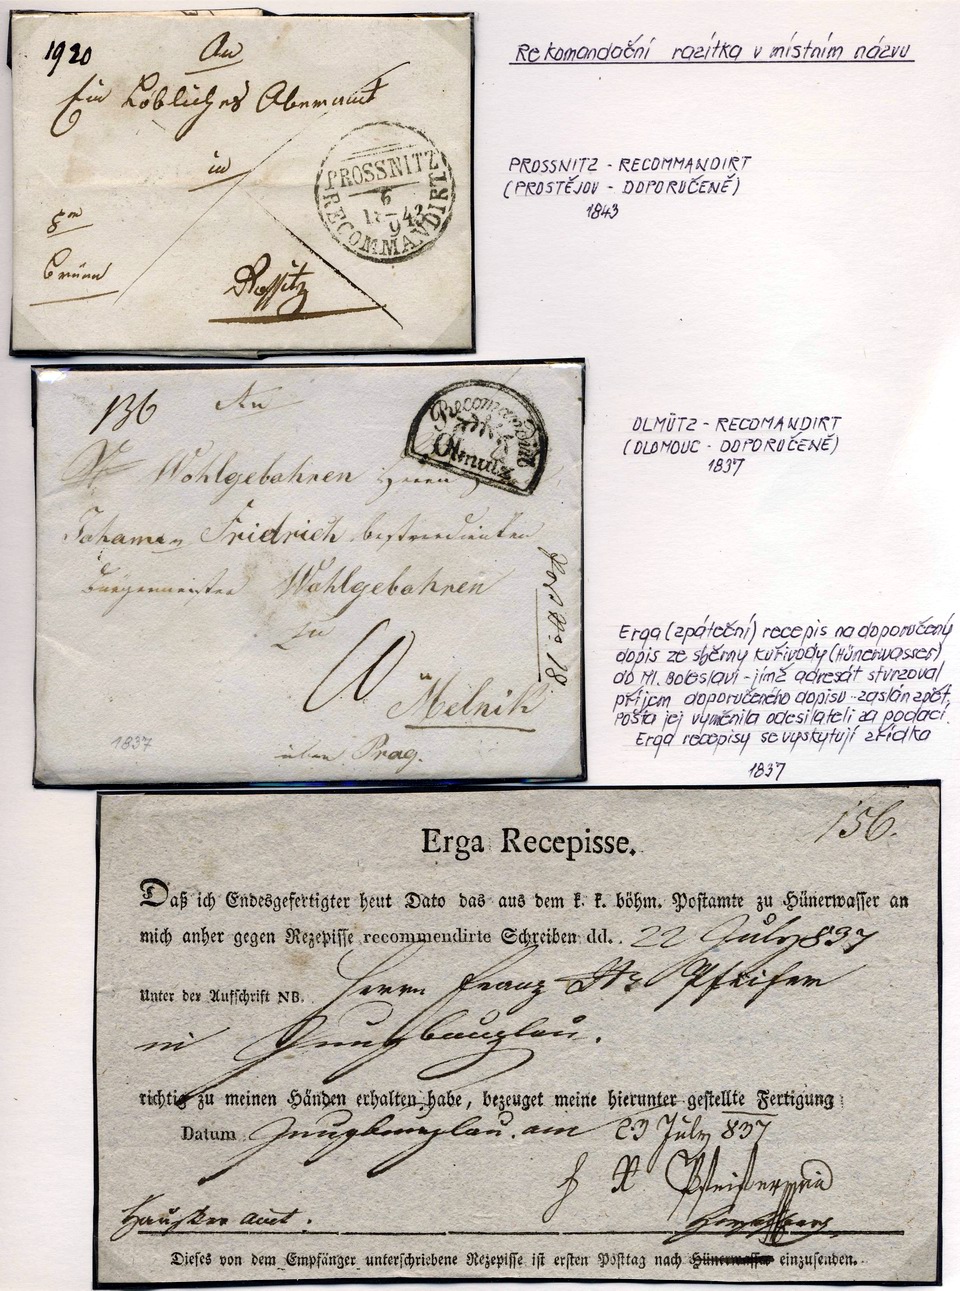 Rekomandační razítka v místním názvu
1920
An
Ein Löbliches Oberamt
in
Brünn
Rossitz
PROSSNITZ
6
9
43
RECOMMANDIRT
PROSSNITZ - RECOMMANDIRT
(PROSTĚJOV - DOPORUČENĚ)
1843
136
An
Recomandirt
Olmütz
Wohlgebohren Herrn
Fridrich
Bürgermeister Wohlgebohren
zu
Melnik
über Prag.
1837
OLMÜTZ - RECOMANDIRT
(OLOMOUC - DOPORUČENĚ)
1837
Erga (zpáteční) recepis na doporučený
dopis ze sběrny Kuřivody (Hünerwasser)
do Ml. Boleslavi - jímž adresát stvrzoval
příjem doporučeného dopisu - zaslán zpět.
Pošta jej vyměnila odesilateli za podací.
Erga recepisy se vyskytují zřídka
1837
156.
Erga Recepisse.
Daß ich Endesgefertigter heut Dato das aus dem k. k. böhm. Postamte zu Hünerwasser an
mich anher gegen Rezepisse recommendirte Schreiben dd. 22 July 837
unter der Aufschrift NB. Herrn Franz Pfeifer
in Jungbunzlau.
richtig zu meinen Händen erhalten habe, bezeuget meine hierunter gestellte Fertigung
Datum Jungbunzlau am 23 July 837
Dieses von dem Empfänger unterschriebene Rezepisse ist ersten Posttag nach Hünerwasser einzusenden.